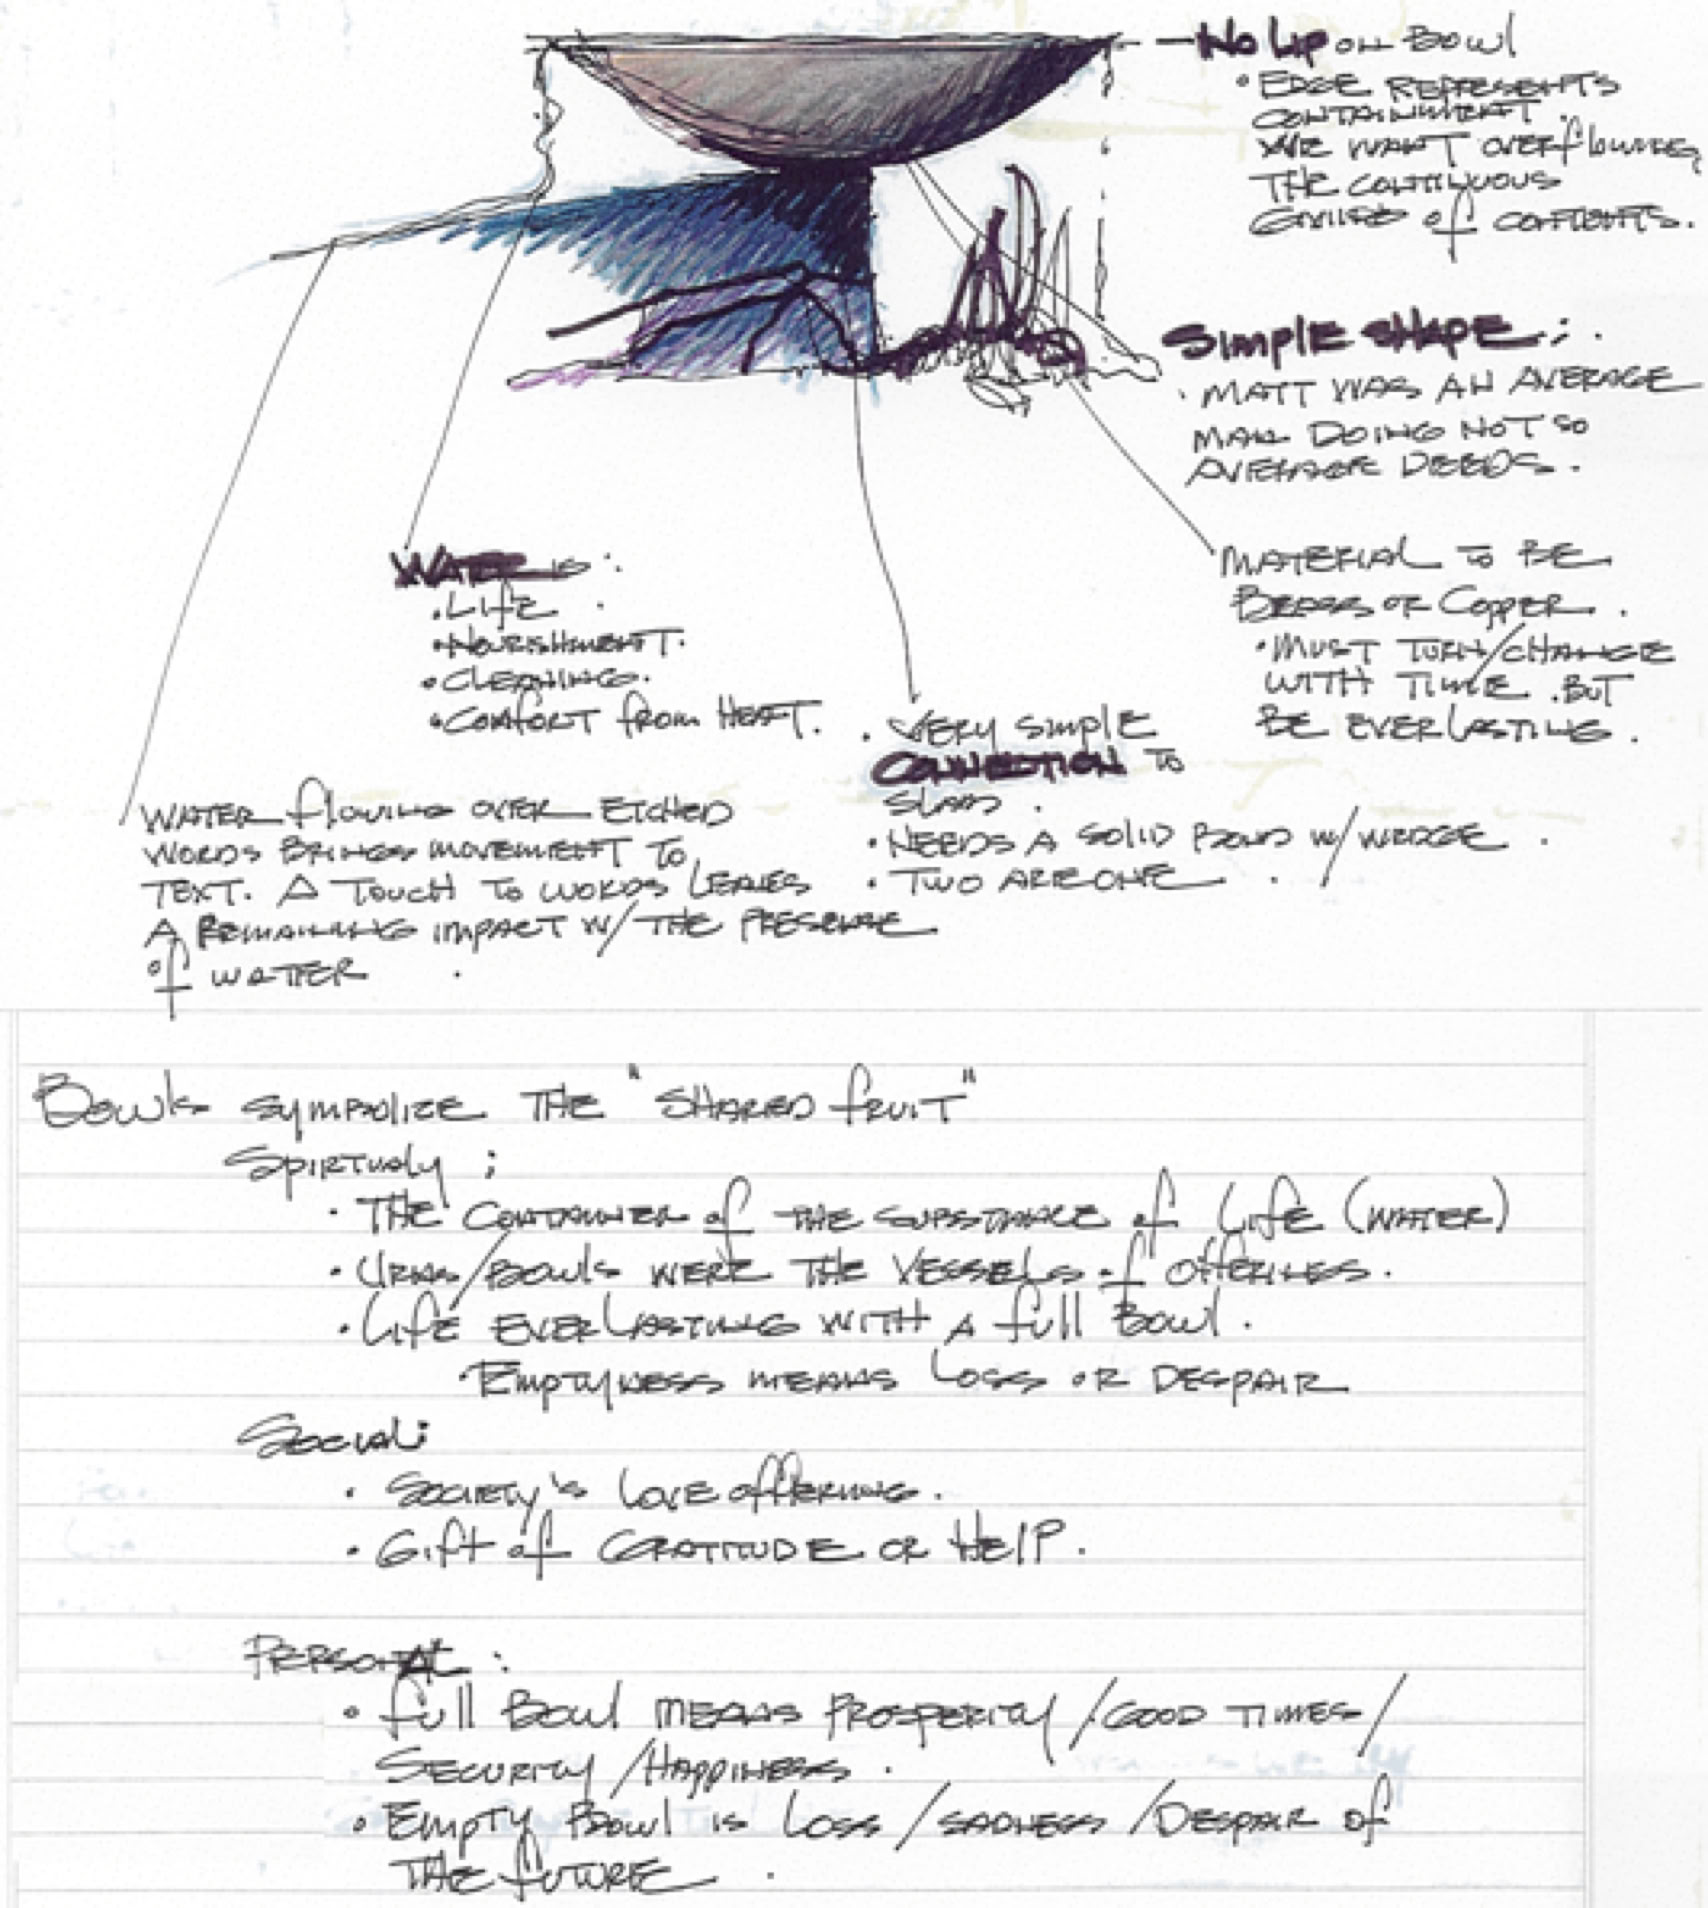 No Lip on Bowl
• Edge represents
containment.
We want overflowing,
the continuous
giving of contents.
Simple shape:
• Matt was an average
man doing not so
average deeds.
Material to be
Brass or Copper.
• Must turn/change
with time. But
be everlasting.
Water is:
• Life
• Nourishment.
• Cleaning.
• Comfort from heat.
• Very simple
connection to
slab.
• Needs a solid bond w/ wedge.
• Two are one
Water flowing over etched
words brings movement to
text. A touch to words leaves
a remaining impact w/ the presence
of water.
Bowls symbolize the "shared fruit"
Spirtualy:
• The container of the substance of life (water)
• Urns/Bowls were the vessels of offerings.
• Life everlasting with a full bowl.
• Emptyness means loss or despair
Social:
• Society's love offering.
• Gift of gratitude or help.
Personal:
• Full bowl means prosperity / good times /
security / happiness.
• Empty bowl is loss / sadness / despair of
the future.